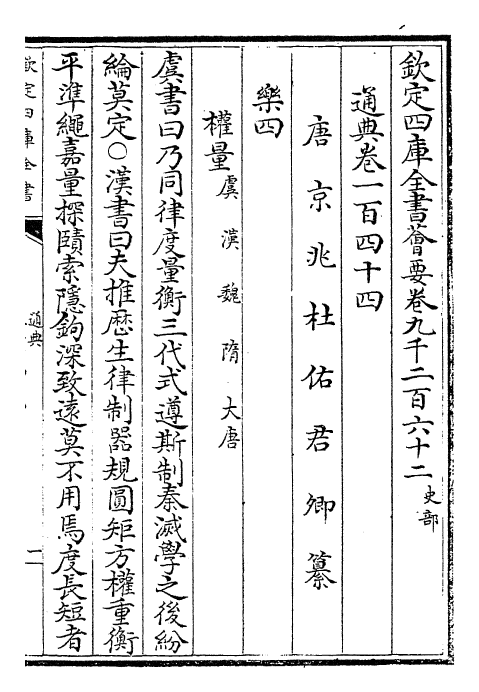 欽定四庫全書薈要卷九千二百六十二 史部
通典卷一百四十四
唐京兆杜佑君卿纂
樂四
權量 虞 漢 魏 隋 大唐
虞書曰乃同律度量衡三代式遵斯制秦滅學之後紛
綸莫定○漢書曰夫推歴生律制器規圓矩方權重衡
平準繩嘉量探賾索隱鉤深致遠莫不用焉度長短者
欽定四庫全書
通典
一